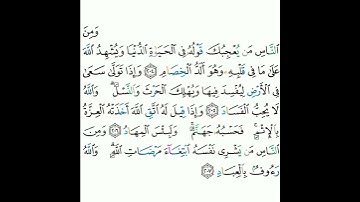 وَمِنَ
النَّاسِ مَن يُعْجِبُكَ قَوْلُهُ فِي الْحَيَوٰةِ الدُّنْيَا وَيُشْهِدُ اللَّهَ
عَلَىٰ مَا فِي قَلْبِهِ وَهُوَ أَلَدُّ الْخِصَامِ ۝٢٠٤ وَإِذَا تَوَلَّىٰ سَعَىٰ
فِي الْأَرْضِ لِيُفْسِدَ فِيهَا وَيُهْلِكَ الْحَرْثَ وَالنَّسْلَ ۗ وَاللَّهُ
لَا يُحِبُّ الْفَسَادَ ۝٢٠٥ وَإِذَا قِيلَ لَهُ اتَّقِ اللَّهَ أَخَذَتْهُ الْعِزَّةُ
بِالْإِثْمِ ۚ فَحَسْبُهُ جَهَنَّمُ ۚ وَلَبِئْسَ الْمِهَادُ ۝٢٠٦ وَمِنَ
النَّاسِ مَن يَشْرِي نَفْسَهُ ابْتِغَاءَ مَرْضَاتِ اللَّهِ ۗ وَاللَّهُ
رَءُوفٌ بِالْعِبَادِ ۝٢٠٧